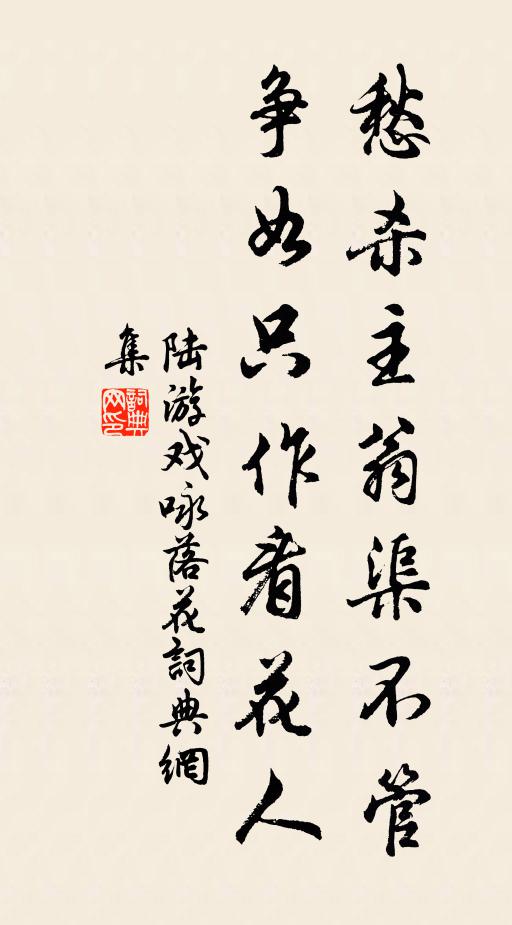 愁杀主翁渠不管
争如只作看花人
陆游戏咏落花詞典網
集
詞典网印